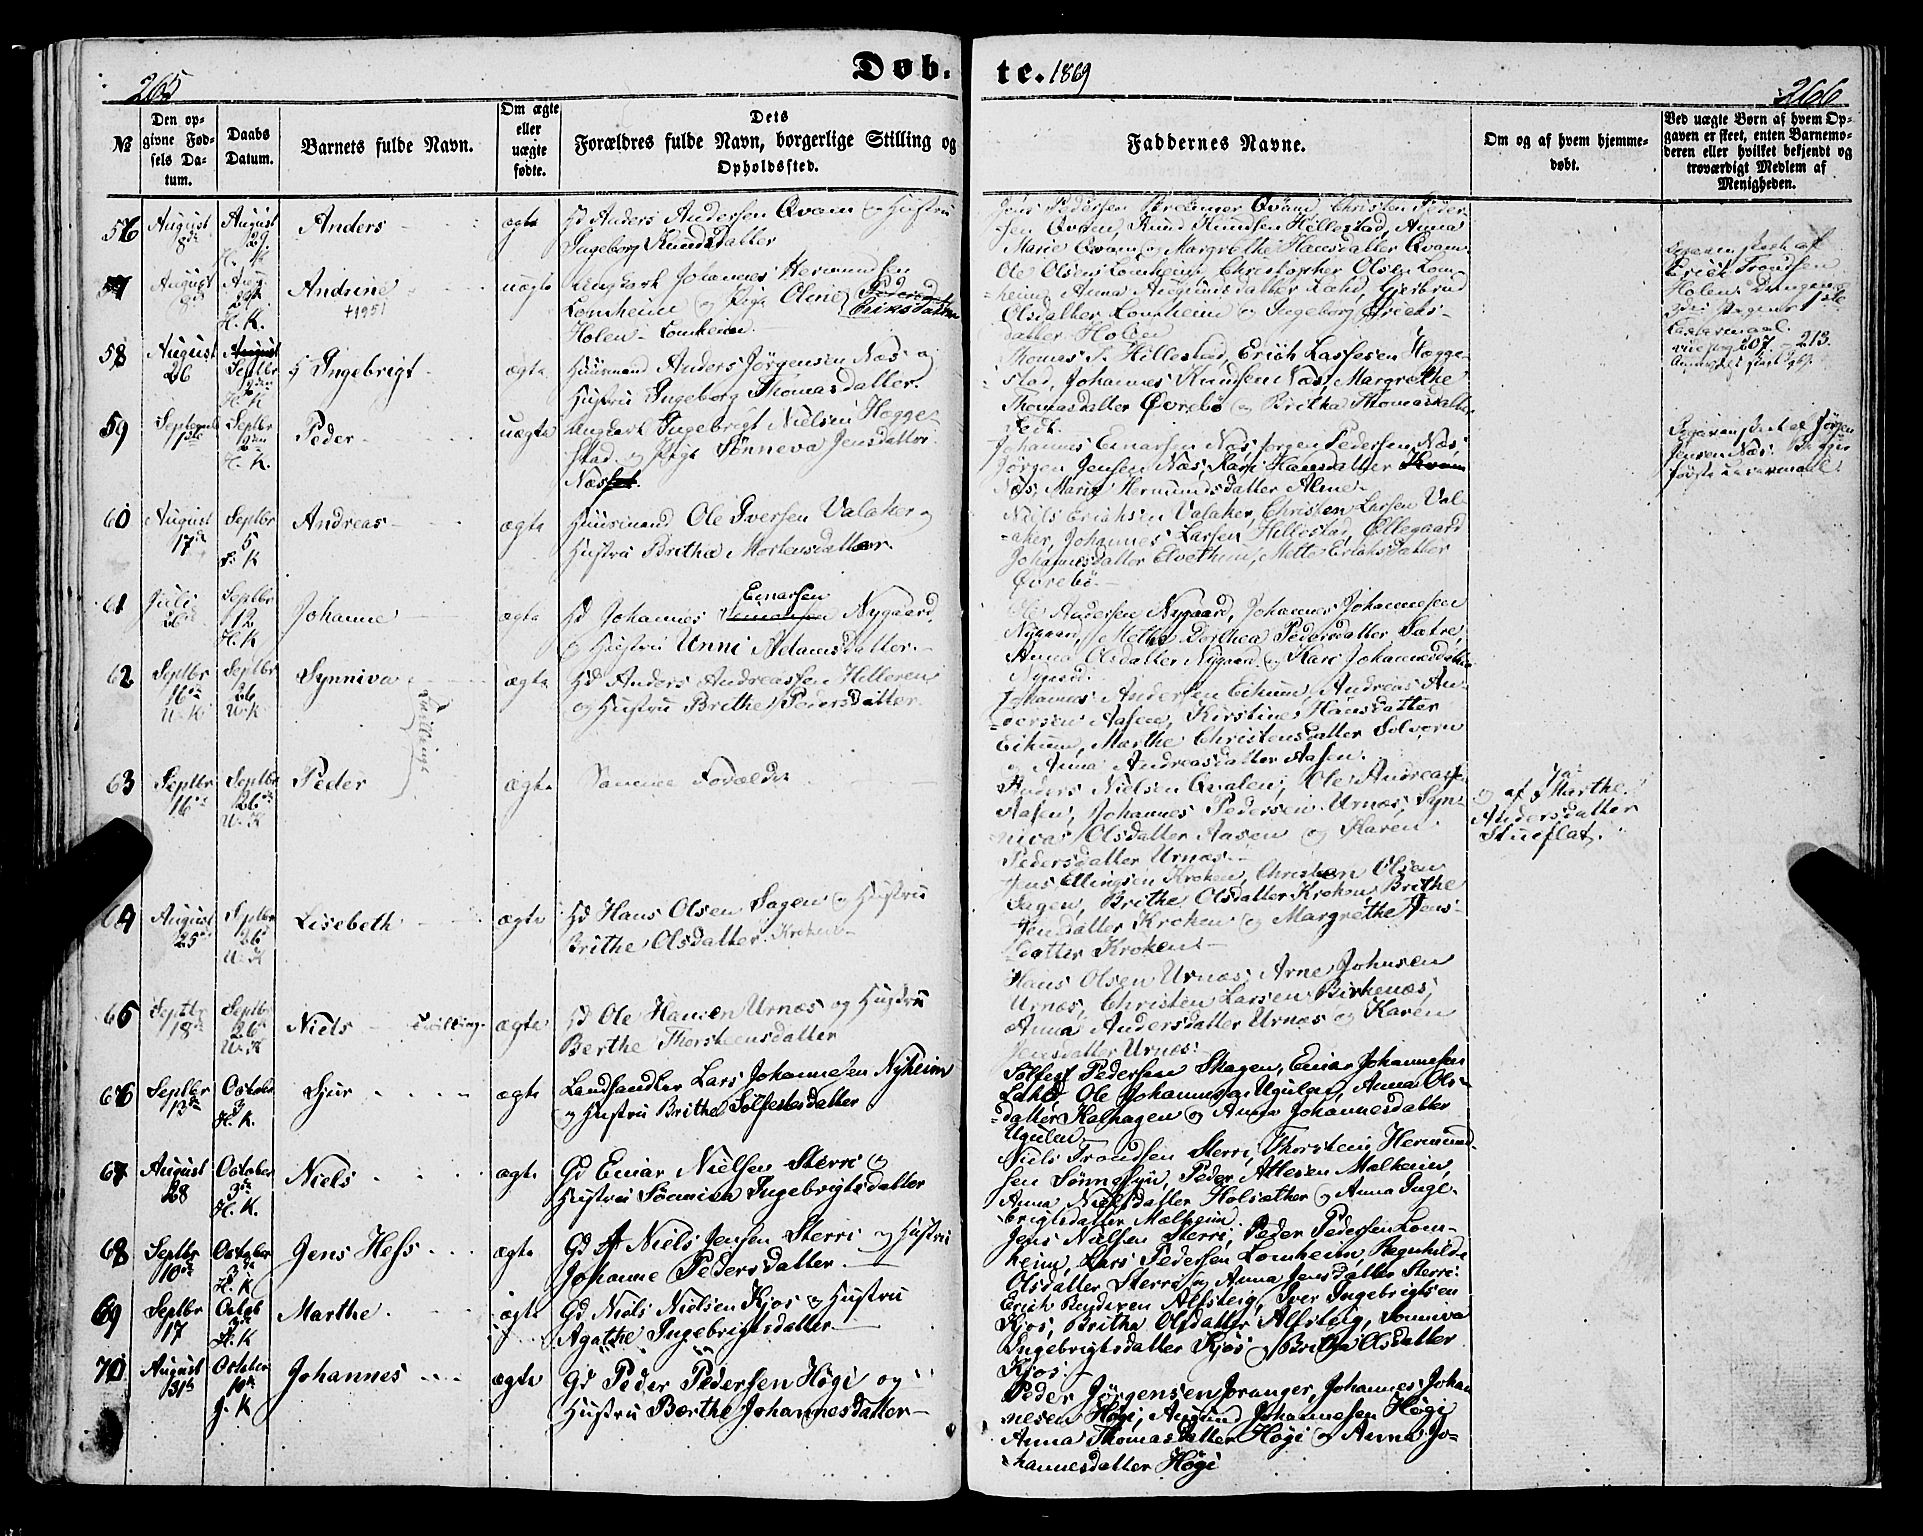 265
Døb.
te. 1869
266
№
Den op-
givne Fød-
sels Da-
tum.
Daabs
Datum.
Barnets fulde Navn.
Om ægte
eller
uægte
fødte.
Dets
Forældres fulde Navn, borgerlige Stilling og
Opholdssted.
Faddernes Navne.
Om og af hvem hjemme-
døbt.
Ved uægte Børn af hvem Op-
gaven er skeet, enten Barnemo-
deren eller hvilket bekjendt og
troværdigt Medlem af
Menigheden.
56
August
8de
August
29
H. K
Anders
ægte
Gd Anders Andersen Qvam og Hustru
Ingeborg Knudsdatter
Jens Pedersen Qvam, Christen Peder-
sen Qvam, Knud Knudsen Hillestad, Anna
Marie Qvam og Margrethe Hansdatter Qvam.
57
August
Aug.
29de
H. K.
Andrine
+1951
uægte
Ungkarl Johannes Hermundsen
Lomheim og Pige Oline Pedersd
Eriksdatter
Holen Lomheim
Ole Olsen Lomheim, Christopher Olsen Lom-
heim, Anna Lahd, Gjertrud
Olsdatter Lomheim og Ingeborg Erichs-
datter Holen
Erich Trondsen
Holen.
58
August
26
August
Septbr
12den
H. K
Ingebrigt
ægte
Huusmand Anders Jörgensen Næs og
Hustru Ingeborg Thomasdatter.
Thomas S. Hillestad, Erich Lassesen Hegge-
stad, Johannes Knudsen Næs, Margrethe
Thomasdatter Øvrebö og Britha Thomasdatter
59
Septemb
1ste
Septbr
12den
H. K.
Peder
uægte
Ungkarl Ingebrigt Nielsen Hegge-
stad og Pige Sønneva Jensdatter
Næs
Johannes Einarsen Næs, Jørgen Pedersen Næs,
Jørgen Jensen Næs, Kari Hansdatter
Næs, Marie Hermundsdatter Alme.
Jørgen
Jensen Næs.
første Leiermaal.
60
August
17de
Septbr
5
F. K
Andreas
ægte
Huusmand Ole Iversen Valaker og
Hustru Brithe Mortensdatter.
Niels Erichsen Valaker, Christen Larsen Val-
aker, Johannes Larsen Hillestad, Ellegaard
Johannesdatter Elvethun, Mette Erichsdatter
Øvrebö.
61
Juli
26de
Septbr
12
H. K
Johanne
ægte
Gd Johannes Simonsen Einarsen Nygaard,
og Hustru Unni Adamsdatter.
Ole Andersen Nygaard, Johannes Johannesen
Nygaard, Methe Dorthea Pedersdatter Sætre,
Anna Olsdatter Nygaard og Kari Johannesdatter
Nygaard.
62
Septbr
16de
U-K
Septbr
26
U.K
Synniva
Tvillinge
ægte
Gd Anders Andreassen Helleren
og Hustru Brithe Pedersdatter
Johannes Andersen Eikum, Andreas An-
dersen Aasen, Kirstine Hansdatter
Eikum, Marthe Christensdatter Solvorn
og Anna Andreasdatter Aasen.
63
Septbr
16de
Septbr
26de
U. K
Peder
ægte
Samme Forældre
Anders Nielsen Qvalen, Ole Andreass.
Aasen, Johannes Pedersen Urnæs, Syn-
niva Olsdatter Aasen og Karen
Pedersdatter Urnæs.
Ja
og af Marthe
Andersdatter
Stueflat.
64
August
25de
Septbr
26
U. K
Lisebeth
ægte
Gd Hans Olsen Hagen og Hustru
Brithe Olsdatter Kroken
Jens Ellingsen Kroken, Christen Olsen
Hagen, Brithe Olsdatter Kroken, Brithe
Jensdatter Kroken og Margrethe Jens-
datter Kroken
65
Septbr
18de
Septbr
26
U. K
Niels Tvilling.
ægte
Gd Ole Hansen Urnæs og Hustru
Berthe Thorsteensdatter
Hans Olsen Urnæs, Arne Johnsen
Urnæs, Christen Larsen Birkenæs,
Anna Andersdatter Urnæs og Karen
Jensdatter Urnæs.
66
Septbr
13de
October
3
H. K.
Sjur
ægte
Landhandler Lars Johannesen Nyheim
og Hustru Brithe Sølfestsdatter
Sølfest Pedersen Skagen, Einar Johannesen
Lahd, Ole Johannesen Ugulen, Anna Ols-
datter Kalhagen og Anna Johannesdatter
Ugulen
67
August
28
October
3de
H. K.
Niels
ægte
Gd Einar Nielsen Sterri og
Hustru Sønniva Ingebrigtsdatter
Niels Trondsen Sterri, Thorstein Hermund-
sen Sønnesyn, Peder Atlesen Molheim,
Anna Nielsdatter Holsæther og Anna Inge-
brigtsdatter Mølheim.
68
Septbr
10de
October
3de
H. K
Jens Hess
ægte
Gd Niels Jensen Sterri og Hustru
Johanne Pedersdatter
Jens Nielsen Sterri, Peder Pedersen Lom-
heim, Lars Pedersen Lomheim, Ragnhilde
Olsdatter Sterri og Anna Jensdatter Sterri.
69
Septbr
17
Octob
3de
H. K
Marthe
ægte
Gd Niels Nielsen Kjos og Hustru
Agathe Ingebrigtsdatter
Erich Alfsteig, Iver Ingebrigtsen
Kjos, Britha Olsdatter Alfsteig, Sonniva
Ingebrigtsdatter Kjos og Brithe Olsdatter
Kjos.
70
August
31te
October
10de
J. K
Johannes
ægte
Gd Peder Pedersen Høgi og
Hustru Berthe Johannesdatter
Peder Jörgensen Joranger, Johannes Johan-
nesen Høgi, Amund Johannesen Høgi
Anna Thomasdatter Høgi og Anna Jo-
hannesdatter Høgi